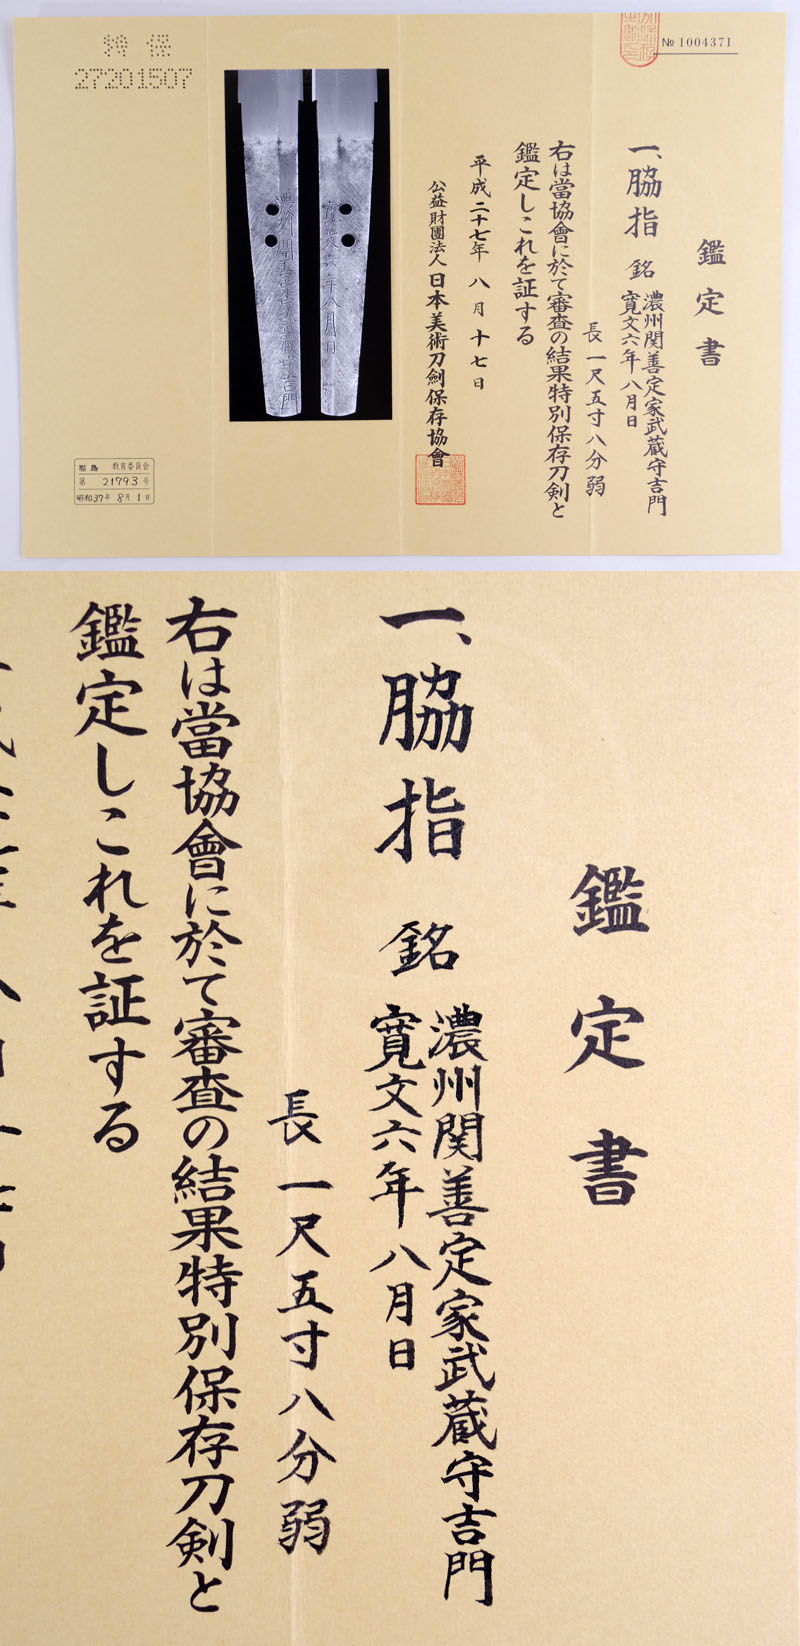 特保
27201507
№ 1004371
鑑定書
一、脇指 銘 濃州関善定家武蔵守吉門
寛文六年八月日
長 一尺五寸八分弱
右は當協會に於て審査の結果特別保存刀剣と
鑑定しこれを証する
平成二十七年 八月 十七日
公益財團法人 日本美術刀劍保存協會
福島 教育委員会
第 21793 号
昭和37年 8月 1日
鑑定書
一、脇指 銘 濃州関善定家武蔵守吉門
寛文六年八月日
長 一尺五寸八分弱
右は當協會に於て審査の結果特別保存刀剣と
鑑定しこれを証する